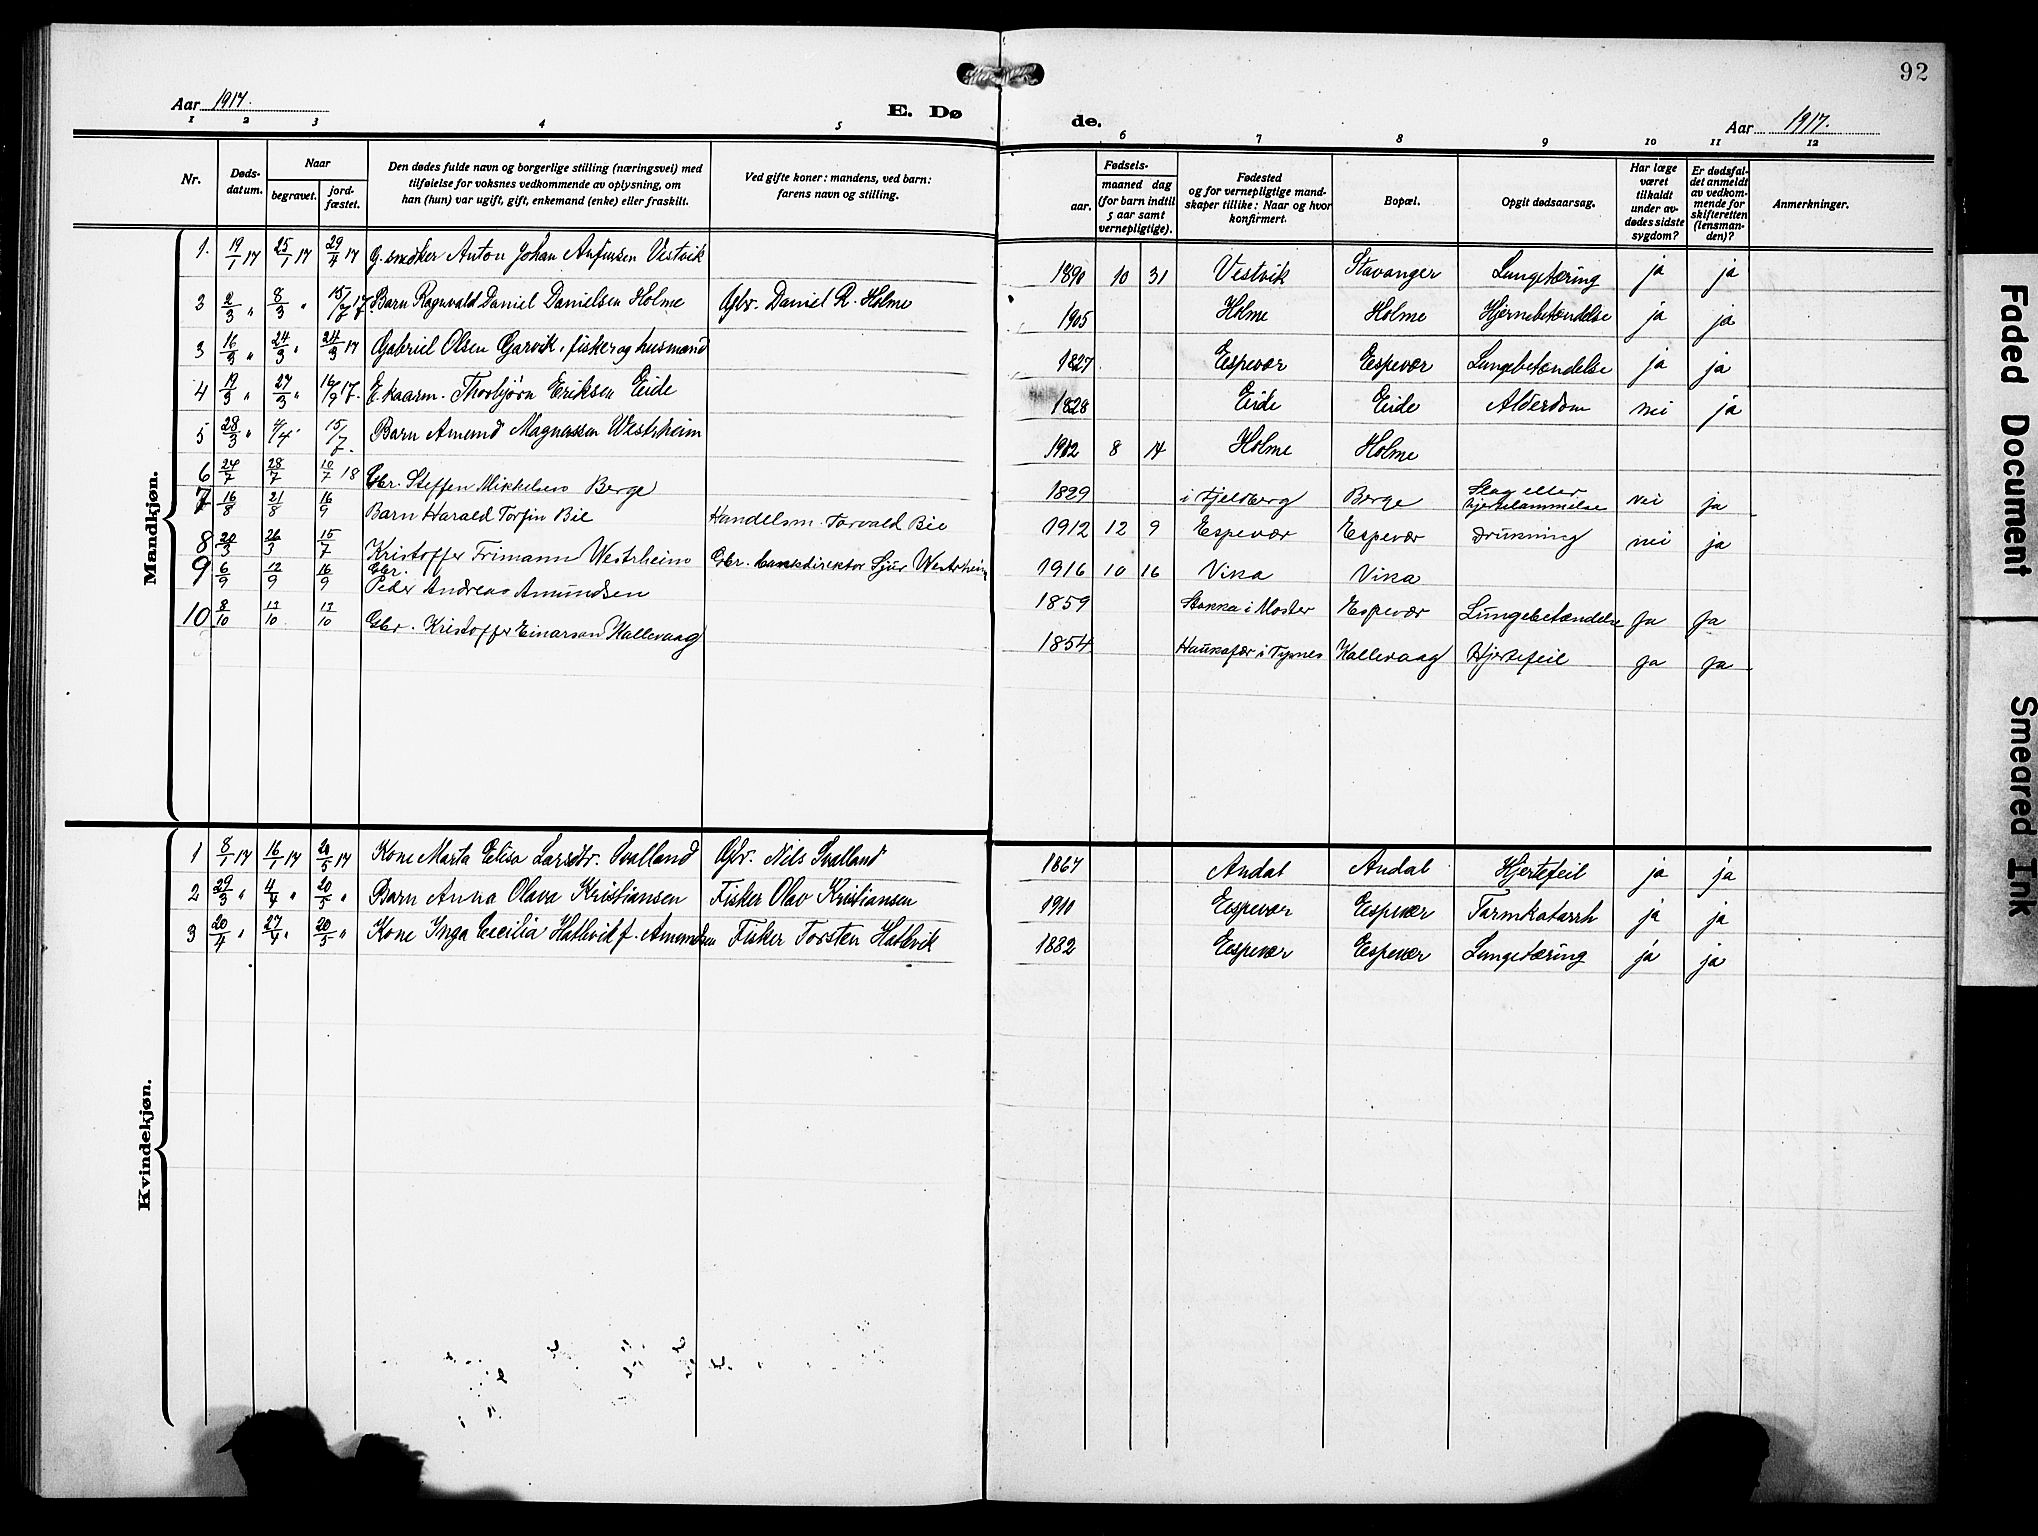 92
Aar 1917.
E. Dø de.
Aar 1917.
1 2 3 4 5 6 7 8 9 10 11 12
Nr.
Døds-datum.
Naar
begravet.
jord-fæstet.
Den dødes fulde navn og borgerlige stilling (næringsvei) med
tilføielse for voksnes vedkommende av oplysning, om
han (hun) var ugift, gift, enkemand (enke) eller fraskilt.
Ved gifte koner: mandens, ved barn:
farens navn og stilling.
Fødsels-
aar.
maaned dag
(for barn indtil
5 aar samt
vernepligtige).
Fødested
og for vernepligtige mand-
skaper tillike: Naar og hvor
konfirmert.
Bopæl.
Opgit dødsaarsag.
Har læge
været
tilkaldt
under av-
dødes sidste
sygdom?
Er dødsfal-
det anmeldt
av vedkom-
mende for
skifteretten
(lensman-
den)?
Anmerkninger.
Mandkjøn.
1. 19/1 17 25/1 17 29/4 17 G. snekker Anton Johan Anfinsen Vestvik 1890 10 31 Vestvik Stavanger Lungetæring ja ja
2 2/3 " 8/3 " 15/7 17. Barn Ragnvald Daniel Danielsen Holme Gbr. Daniel R. Holme 1905 Holme Holme Hjernebetændelse ja ja
3 16/3 " 24/3 " 24/3 17 Gabriel Olsen Garvik, fisker og husmand 1827 Espevær Espevær Lungebetændelse ja ja
4 19/3 " 27/3 " 16/9 17. E. kaarm. Thorbjørn Eriksen Eide 1828 Eide Eide Alderdom nei ja
5 28/3 " 4/4 15/7. Barn Amund Magnussen Westrheim 1912 8 14 Holme Holme
6 24/7 28/7 10/7 18 Gbr. Steffen Mikkelsen Berge 1829 i Fjelberg Berge Slag eller hjertelammelse nei ja
7 16/8 21/8 16/9 Barn Harald Torfin Bie Handelsm. Torvald Bie 1912 12 9 Espevær Espevær Drukning nei ja
8 20/3 26/3 15/7 Kristoffer Trimann Westrheim Gbr. bankdirektør Sjur Westrheim 1916 10 16 Vika Vika
9 6/9 12/9 16/9 Gbr. Peder Andreas Amundsen 1859 Stokka i Moster Espevær Lungebetændelse Ja Ja
10 8/10 13/10 13/10 Gbr. Kristoffer Einarsen Hallevaag 1854 Haukafær i Tysnes Hallevaag Hjertefeil ja ja
Kvindekjøn.
1 8/1 17 16/1 17 20/5 17 Kone Marta Elisa Larsdtr. Svalland Gbr. Nils Svalland 1867 Andal Andal Hjertefeil ja ja
2 29/3 " 4/4 " 20/5 " Barn Anna Olava Kristiansen Fisker Olav Kristiansen 1910 Espevær Espevær Tarmkatarrh ja ja
3 20/4 " 27/4 " 20/5 " Kone Inga Cecilia Hatlevik f. Amundsen Fisker Torsten Hatlevik 1882 Espevær Espevær Lungetæring ja ja
Faded Document
Smeared Ink